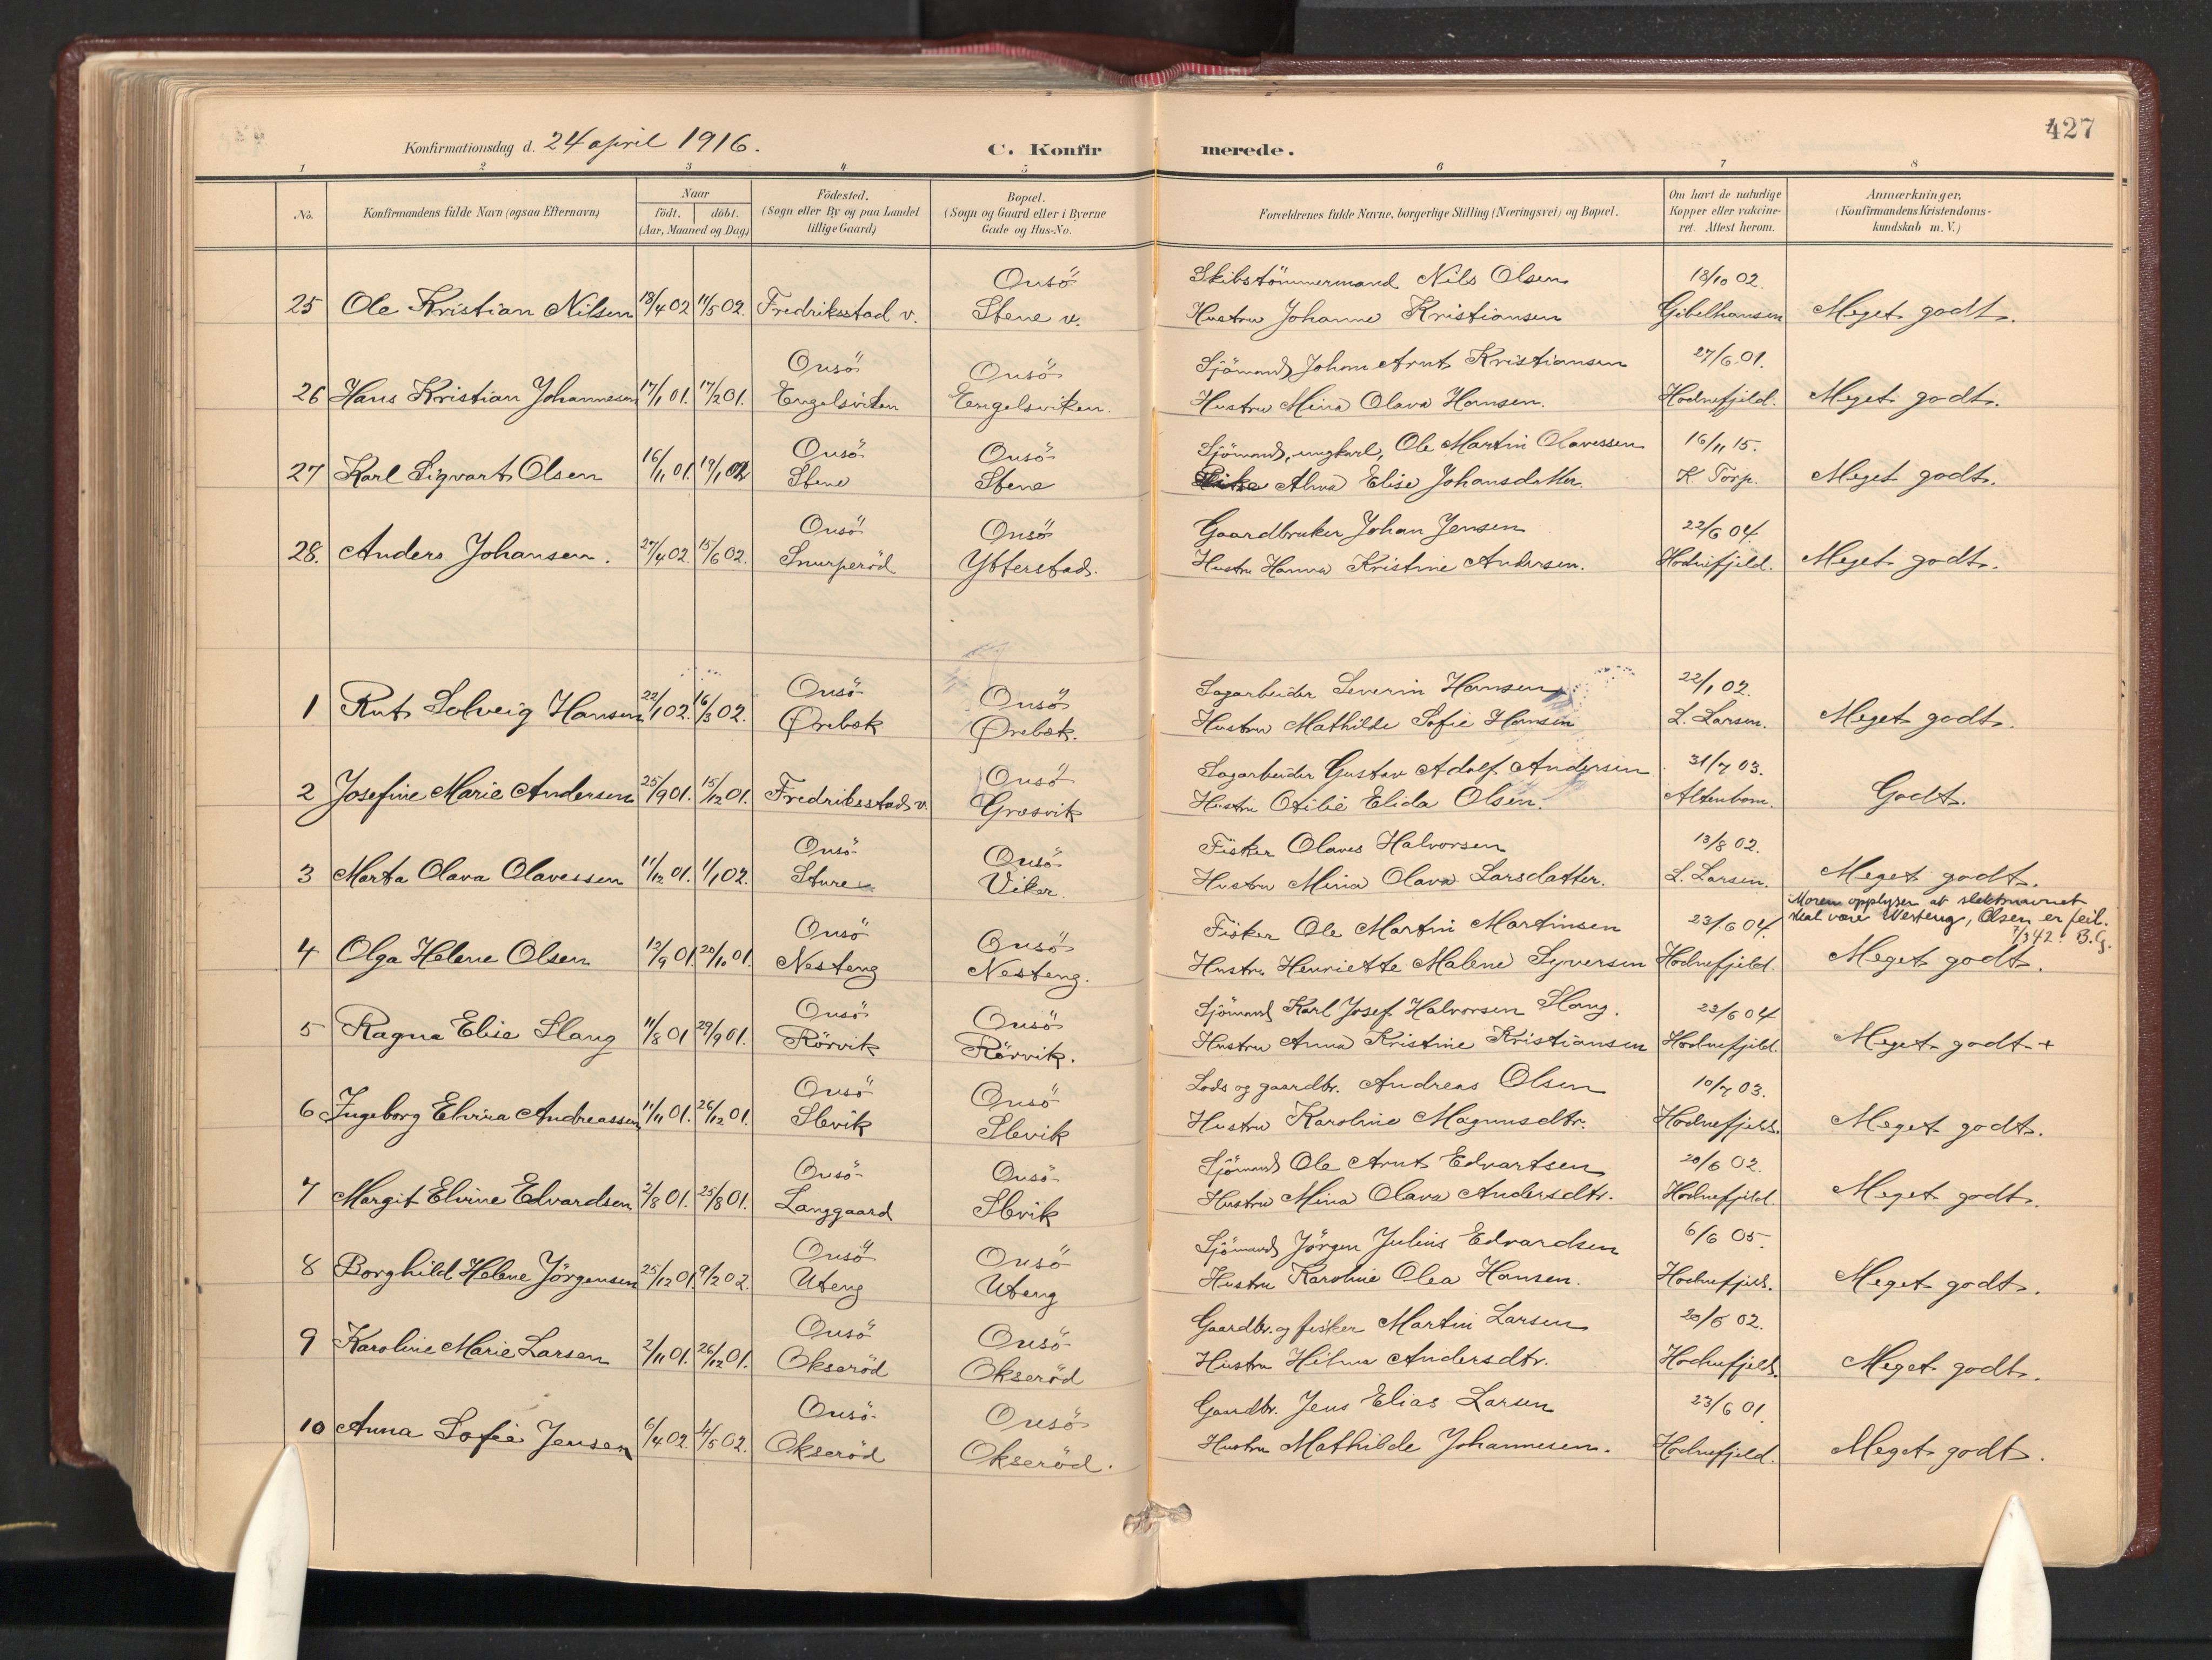 427
Konfirmationsdag d. 24 april 1916.
C. Konfirmerede.
1 2 3 4 5 6 7 8
No.
Konfirmandens fulde Navn (ogsaa Efternavn)
Naar
födt. döbt.
(Aar, Maaned og Dag)
Födested.
(Sogn eller By og paa Landet
tillige Gaard)
Bopæl.
(Sogn og Gaard eller i Byerne
Gade og Hus-No.
Forældrenes fulde Navne, borgerlige Stilling (Næringsvei) og Bopæl.
Om havt de naturlige
Kopper eller vakcine-
ret. Attest herom.
Anmærkninger,
(Konfirmandens Kristendoms-
kundskab m. V.)
Onsö Skibstömmermand Nils Olsen 18/10 02.
25 Ole Kristian Nilsen 18/4 02 11/5 02. Fredriksstad v. Stene v. Hustru Johanne Kristiansen Gibelhausen Meget godt.
Onsö Onsö Sjömand Johan Arnt Kristiansen 27/6 01.
26 Hans Kristian Johannesen 17/1 01. 17/2 01. Engelsviken Engelsviken. Hustru Mina Olava Hansen. Hodnefjeld. Meget godt.
Onsö Onsö Sjömand, ungkarl, Ole Martin Olavessen 16/11 15.
27 Karl Sigvart Olsen 16/11 01. 19/1 02 Stene Stene Pike Alma Elise Johansdatter K Torp. Meget godt.
Onsö Onsö Gaardbruker Johan Jensen 22/6 04.
28. Anders Johansen. 27/4 02. 15/6 02. Snurperöd Ytterstad. Hustru Hanna Kristine Andersen. Hodnefjeld. Meget godt.
Onsö Onsö Sagarbeider Severin Hansen 22/1 02.
1 Rut Solveig Hansen 22/1 02. 16/3 02. Ørebæk Ørebæk. Hustru Mathilde Sofie Hansen L. Larsen. Meget godt.
Onsö Sagarbeider Gustav Adolf Andersen 31/7 03.
2 Josefine Marie Andersen 25/9 01. 15/12 01. Fredriksstad v. Græsvik Hustru Otilie Elida Olsen. Altenborn. Godt.
Onsö Onsö Fisker Olaves Halvorsen 13/8 02.
3 Marta Olava Olavessen 11/12 01. 1/1 02. Sture Viker. Hustru Mina Olava Larsdatter. L. Larsen. Meget godt.
Moren opplyser at slektnavnet
skal være Nesteng, Olsen er feil.
7/3 42. B.G.
Onsö Onsö Fisker Ole Martin Martinsen 23/6 04.
4 Olga Helene Olsen 12/9 01. 20/10 01. Nesteng Nesteng. Hustru Henriette Malene Syversen Hodnefjeld. Meget godt.
Onsö Onsö Sjömand Karl Josef Halvorsen Slang. 23/6 04
5 Ragna Elise Slang 11/8 01 29/9 01. Rörvik Rörvik. Hustru Anna Kristine Kristiansen Hodnefjeld. Meget godt +
Onsö Onsö Lods og gaardbr. Andreas Olsen 10/7 03.
6 Ingeborg Elvira Andreassen 11/11 01. 26/12 01. Slevik Slevik Hustru Karoline Magnusdtr. Hodnefjeld. Meget godt.
Onsö Onsö Sjömand Ole Arnt Edvartsen 20/6 02.
7 Margit Elvine Edvardsen 2/8 01. 25/8 01. Langgaard Slevik Hustru Mina Olava Andersdtr. Hodnefjeld Meget godt.
Onsö Onsö Sjömand Jörgen Julius Edvardsen 6/6 05.
8 Borghild Helene Jörgensen 25/12 01. 9/2 02. Uteng Uteng Hustru Karoline Olea Hansen. Hodnefjeld. Meget godt.
Onsö Onsö Gaardbr. og fisker Martin Larsen 20/6 02.
9 Karoline Marie Larsen 2/11 01. 26/12 01. Okseröd Okseröd Hustru Hilma Andersdtr. Hodnefjeld. Meget godt.
Onsö Onsö Gaardbr. Jens Elias Larsen 23/6 01.
10 Anna Sofie Jensen 6/4 02. 4/5 02. Okseröd Okseröd. Hustru Mathilde Johannesen. Hodnefjeld. Meget godt.